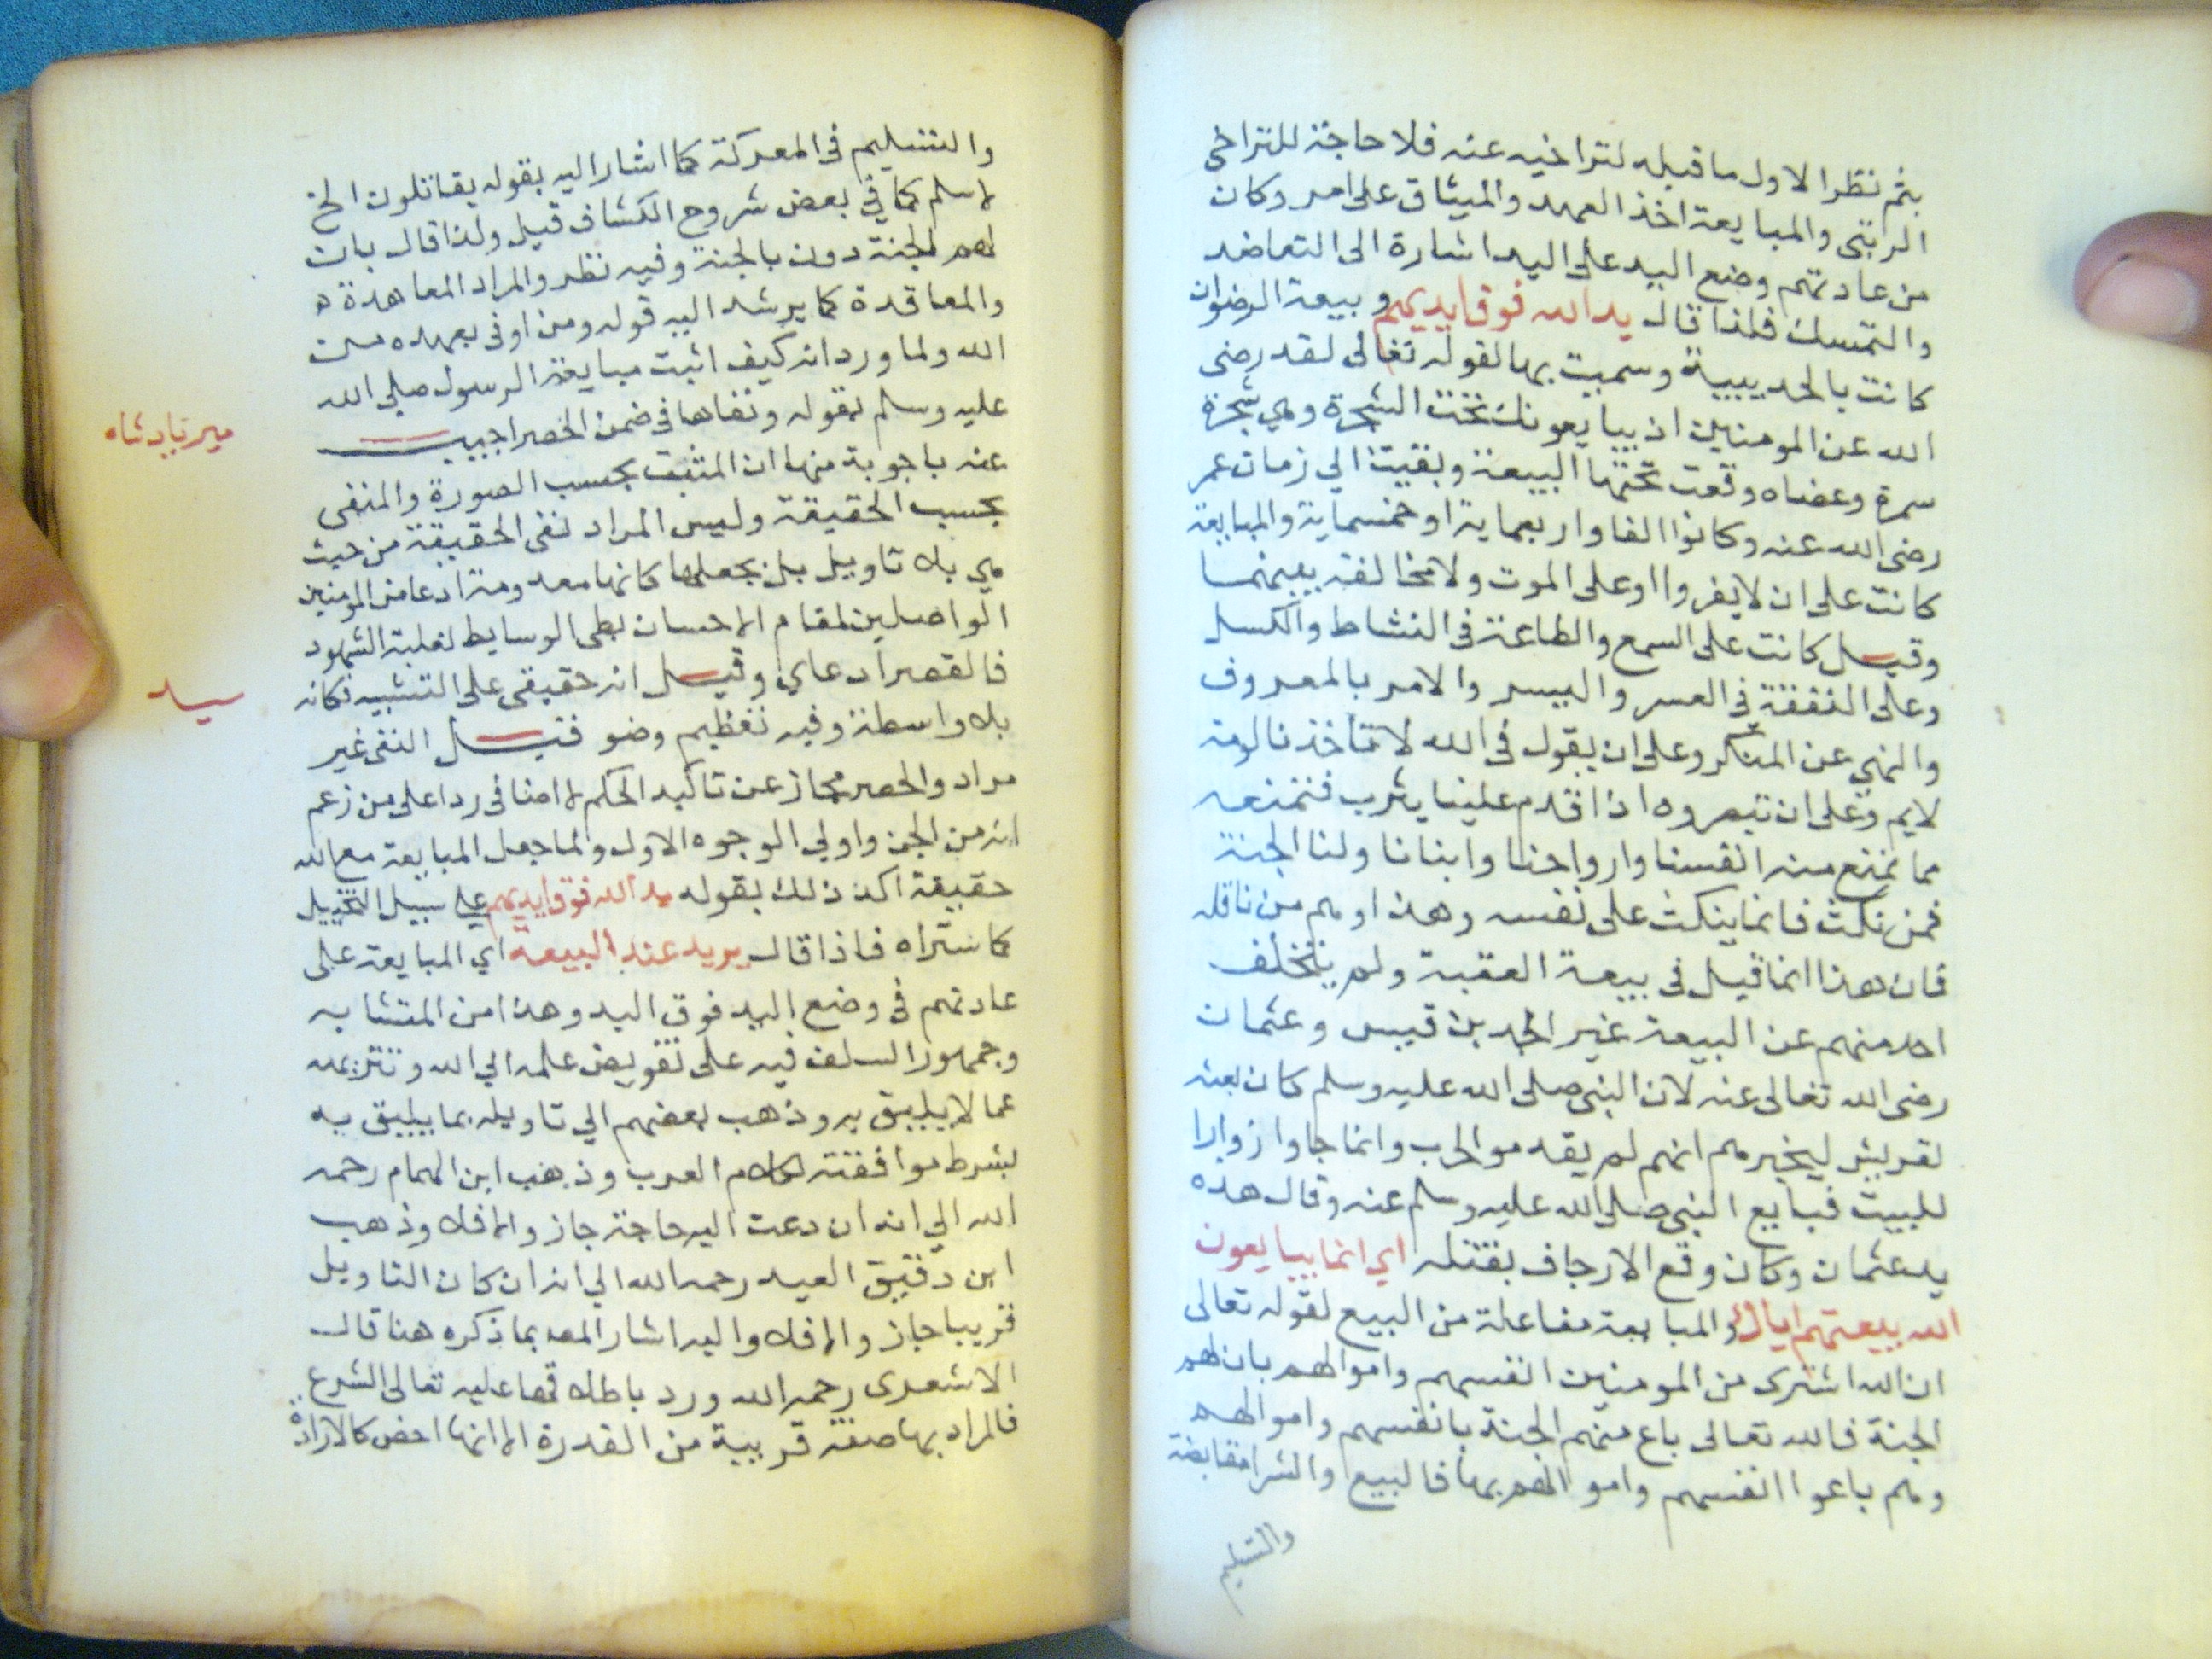 بثم نظرا لاول ما قبله لتراخيه عنه فلا حاجة للتراخي
الرتبى والمبايعة اخذ العهد والميثاق على امر وكان
من عادتهم وضع اليد على اليد اشارة الى التعاضد
والتمسك فلذا قال يد الله فوق ايديهم وبيعة الرضوان
كانت بالحديبية وسميت بها لقوله تعالى لقد رضى
الله عن المومنين اذ يبايعونك تحت الشجرة وهي شجرة
سمرة وعضاه وقعت تحتها البيعة وبقيت الي زمان عمر
رضى الله عنه وكانوا الفا واربعماية او خمسماية والمبايعة
كانت على ان لا يفروا او على الموت ولا مخالفة بينهما
وقيل كانت على السمع والطاعة في النشاط والكسل
وعلى النفقة في العسر واليسر والامر بالمعروف
والنهي عن المنكر وعلى ان يقول في الله لا تتاخذنا لومة
لايم وعلى ان تبصروه اذا قدم علينا يثرب فنمنعه
مما نمنع منه انفسنا وارواحنا وابنانا ولنا الجنة
فمن نكث فانما ينكث على نفسه وهذا وهم من ناقله
فان هذا انما قيل في بيعة العقبة ولم يتخلف
احد منهم عن البيعة غير الجد بن قيس وعثمان
رضى الله تعالى عنه لان النبي صلى الله عليه وسلم كان بعثه
لقريش ليخبرهم انهم لم يقدموا لحرب وانما جاوا زوارا
للبيت فبايع النبي صلى الله عليه وسلم عنه وقال هذه
يد عثمان وكان وقع الارجاف بقتله اي انما يبايعون
الله ببيعتهم اياك والمبايعة مفاعلة من البيع لقوله تعالى
ان الله اشترى من المومنين انفسهم واموالهم بان لهم
الجنة فالله تعالى باع منهم الجنة بانفسهم واموالهم
وهم باعوا انفسهم واموالهم بها فالبيع والشرا مقابضة
والتسليم
والتسليم في المعركة كما اشار اليه بقوله يقاتلون الخ
لاسلم كما في بعض شروح الكشاف قيل ولذا قال بان
لهم الجنة دون بالجنة وفيه نظر والمراد المعاهدة ه
والمعاقدة كما يرشد اليه قوله ومن اوفى بعهده من
الله ولما ورد انه كيف اثبت مبايعة الرسول صلى الله
عليه وسلم لقوله ونفاها في ضمن الحصر اجيب
مير بادشاه
عنه باجوبة منها ان المثبت بحسب الصورة والمنفى
بحسب الحقيقة وليس المراد نفى الحقيقة من حيث
هي بلا تاويل بل بجعلها كانها معه ومن ادعا من المومنين
الواصلين لمقام الاحسان بطي الوسايط لغلبة الشهود
فالقصر ادعاي وقيل انه حقيقى على التشبيه فكانه
سيد
بلا واسطة وفيه تعظيم وضو فقيل النفى غير
مراد والحصر مجاز عن تاكيد الحكم لا اضافى ردا على من زعم
انه من الجن واولي الوجوه الاول ولما جعل المبايعة مع الله
حقيقة اكد ذلك بقوله يد الله فوق ايديهم على سبيل التخييل
كما ستراه فاذا قال يريد عند البيعة اي المبايعة على
عادتهم في وضع اليد فوق اليد وهذا من المتشابه
وجمهور السلف فيه على تفويض علمه الي الله وتنزيهه
عما لا يليق به وذهب بعضهم الي تاويله بما يليق به
بشرط موافقته لكلام العرب وذهب ابن الهمام رحمه
الله الي انه ان دعت اليه حاجة جاز والا فلا وذهب
ابن دقيق العيد رحمه الله الي انه ان كان التاويل
قريبا جاز والا فلا واليه اشار المص بما ذكره هنا قال
الاشعرى رحمه الله ورد باطلاقها عليه تعالى الشرع
فالمراد بها صفة قريبة من القدرة الا انها اخص كالارادة